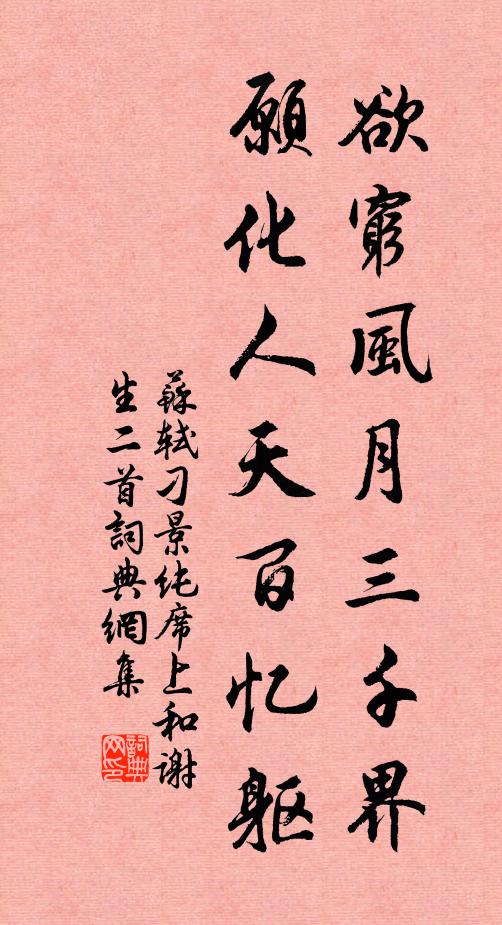 欲窮風月三千界
願化人天百忆軀
蘇轼刁景纯席上和謝
生二首詞典網集
詞典网印